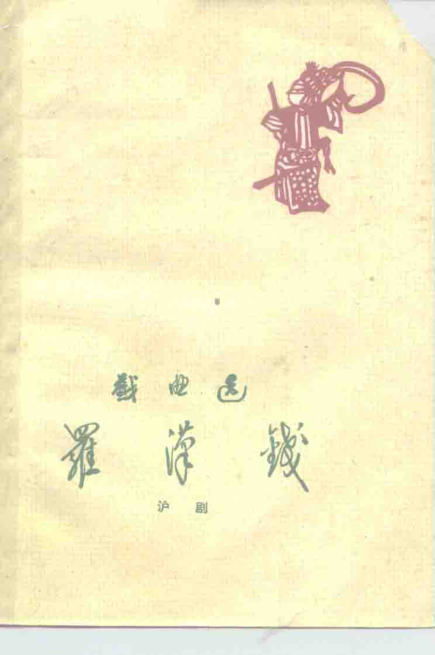 戱曲选
羅漢錢
沪剧